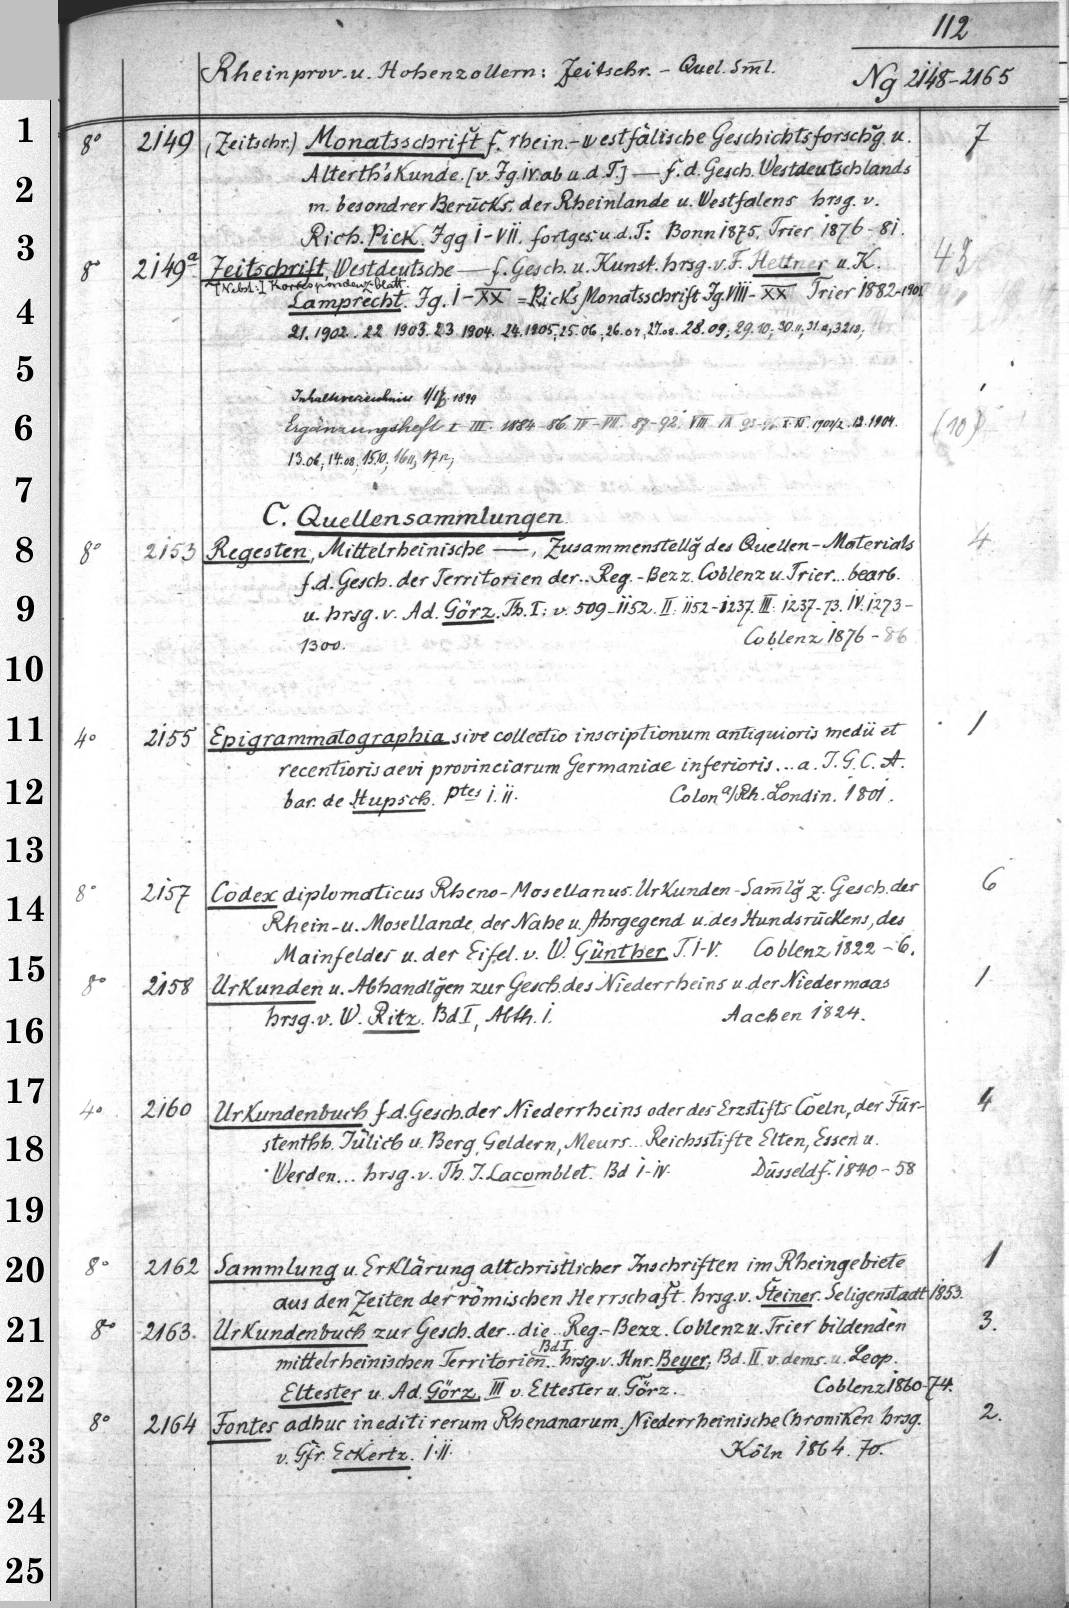 112
Rheinprov. u. Hohenzollern: Zeitschr. - Quel. Sm̄l.
Ng 2148-2165
1
8° 2149 (Zeitschr.) Monatsschrift f. rhein.-westfälische Geschichtsforschg̃ u. 7
Alterth's Kunde. [v. Jg. IV. ab u. d. T.] — f. d. Gesch. Westdeutschlands
2
m. besondrer Berücks. der Rheinlande u. Westfalens hrsg. v.
3
Rich. Pick. Jgg I-VII. fortges: u. d. T: Bonn 1875, Trier 1876-81.
8° 2149a Zeitschrift, Westdeutsche — f. Gesch. u. Kunst. hrsg. v. F. Hettner u. K. 43
[Nebst:] Korrespondenzblatt.
4
Lamprecht. Jg. I-XX = Pick's Monatsschrift Jg. VIII- XX Trier 1882-1901
21. 1902. 22 1903. 23 1904. 24. 1905, 25. 06, 26. 07, 27. 08. 28. 09; 29. 10; 30. 11; 31. 12,
5
Inhaltsverzeichnis 1899
6
Ergänzungsheft I-III. 1884-86. IV-VII. 87-92. VIII IX 95-96 X-XI. 1901/2. 12. 1904. (10)
13. 06, 14. 08, 15. 10; 16 11, 17 12,
7
C. Quellensammlungen
8
8° 2153 Regesten, Mittelrheinische —, Zusammenstellg̃ des Quellen-Materials 4
f. d. Gesch. der Territorien der.. Reg.-Bezz. Coblenz u. Trier... bearb.
9
u. hrsg. v. Ad. Görz. Th. I: v. 509-1152. II: 1152-1237. III: 1237-73. IV. 1273-
1300. Coblenz 1876-86
10
11
4° 2155 Epigrammatographia sive collectio inscriptionum antiquioris medii et 1
recentioris aevi provinciarum Germaniae inferioris... a. J. G. C. A.
12
bar. de Hüpsch. ptes I. II. Colon a/Rh. Londin. 1801.
13
8° 2157 Codex diplomaticus Rheno-Mosellanus. Urkunden-Sam̄lg̃ z. Gesch. der 6
14
Rhein- u. Mosellande, der Nahe u. Ahrgegend u. des Hundsrückens, des
Mainfeldes u. der Eifel. v. W. Günther T. I-V. Coblenz 1822-6.
15
8° 2158 Urkunden u. Abhandlg̃en zur Gesch. des Niederrheins u. der Niedermaas 1
16
hrsg. v. W. Ritz. Bd I, Abth. I. Aachen 1824.
17
4° 2160 Urkundenbuch f. d. Gesch. der Niederrheins oder des Erzstifts Cöeln, der Für- 4
18
stenthh. Jülich u. Berg, Geldern, Meurs... Reichsstifte Elten, Essen u.
Werden... hrsg. v. Th. J. Lacomblet. Bd I-IV. Düsseldf. 1840-58
19
20
8° 2162 Sammlung u. Erklärung altchristlicher Inschriften im Rheingebiete 1
aus den Zeiten der römischen Herrschaft. hrsg. v. Steiner. Seligenstadt 1853.
21
8° 2163. Urkundenbuch zur Gesch. der.. die.. Reg.-Bezz. Coblenz u. Trier bildenden 3.
Bd I
mittelrheinischen Territorien... hrsg. v. Hnr. Beyer, Bd. II v. dems. u. Leop.
22
Eltester u. Ad. Görz, III v. Eltester u. Görz. Coblenz 1860-74.
8° 2164 Fontes adhuc inediti rerum Rhenanarum. Niederrheinische Chroniken hrsg. 2.
23
v. Gfr. Eckertz. I. II. Köln 1864. 70.
24
25